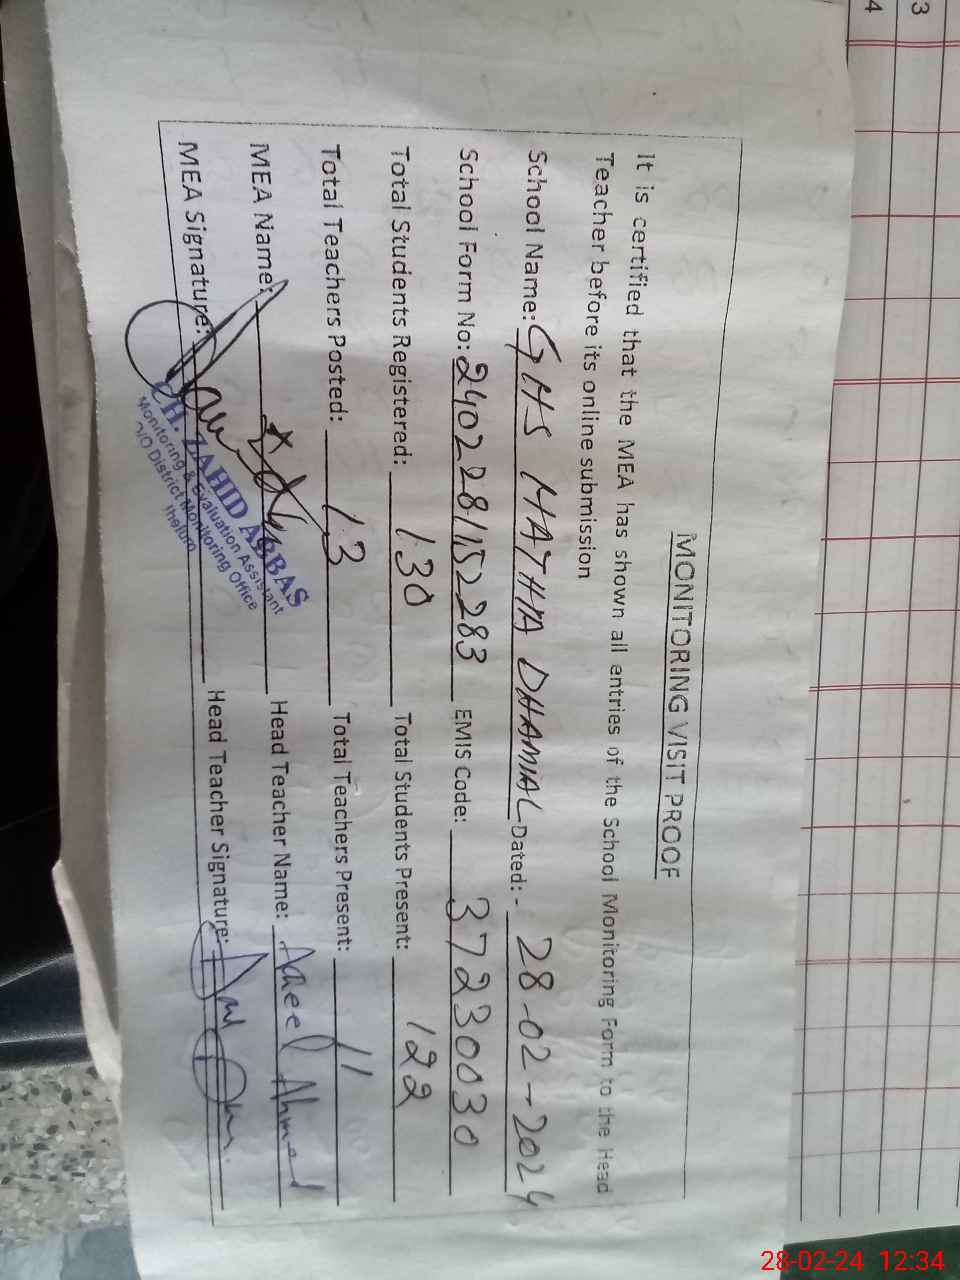 3
4
MONITORING VISIT PROOF
It is certified that the MEA has shown all entries of the School Monitoring Form to the Head
Teacher before its online submission
School Name: GHS HATHIA DHAMIAL Dated: - 28-02-2024
School Form No: 2402281152283 EMIS Code: 37230030
Total Students Registered: 130 Total Students Present: 122
Total Teachers Posted: 13 Total Teachers Present: 11
MEA Name: Head Teacher Name: Adeel Ahmed
MEA Signature: Head Teacher Signature:
CH. ZAHID ABBAS
Monitoring & Evaluation Assistant
O/O District Monitoring Office
Jhelum
28-02-24 12:34